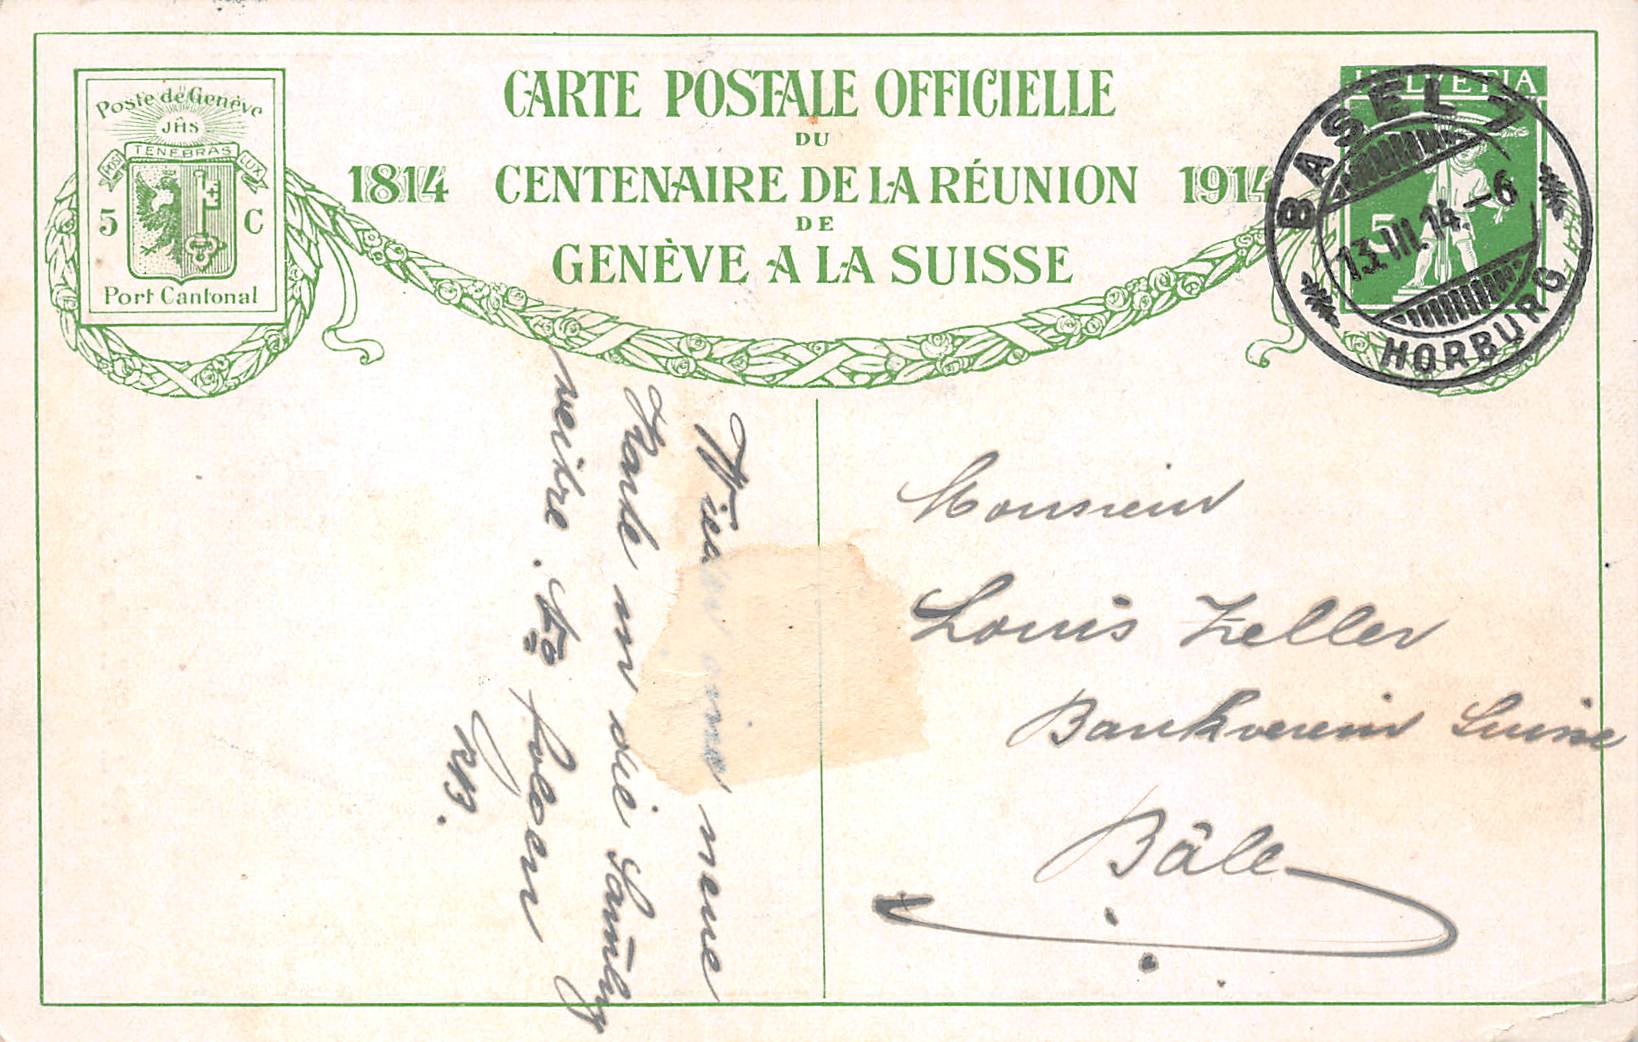 Poste de Genève
JHS
POST TENEBRAS LUX
5 C
Port Cantonal
CARTE POSTALE OFFICIELLE
DU
1814 CENTENAIRE DE LA RÉUNION 1914
DE
GENÈVE A LA SUISSE
HELVETIA
5
BASEL 7
13.III.14.-6
HORBURG
Monsieur
Louis Zeller
Bankverein Suisse
Bâle
neue
Karte in die Samlung
weitere. folgen